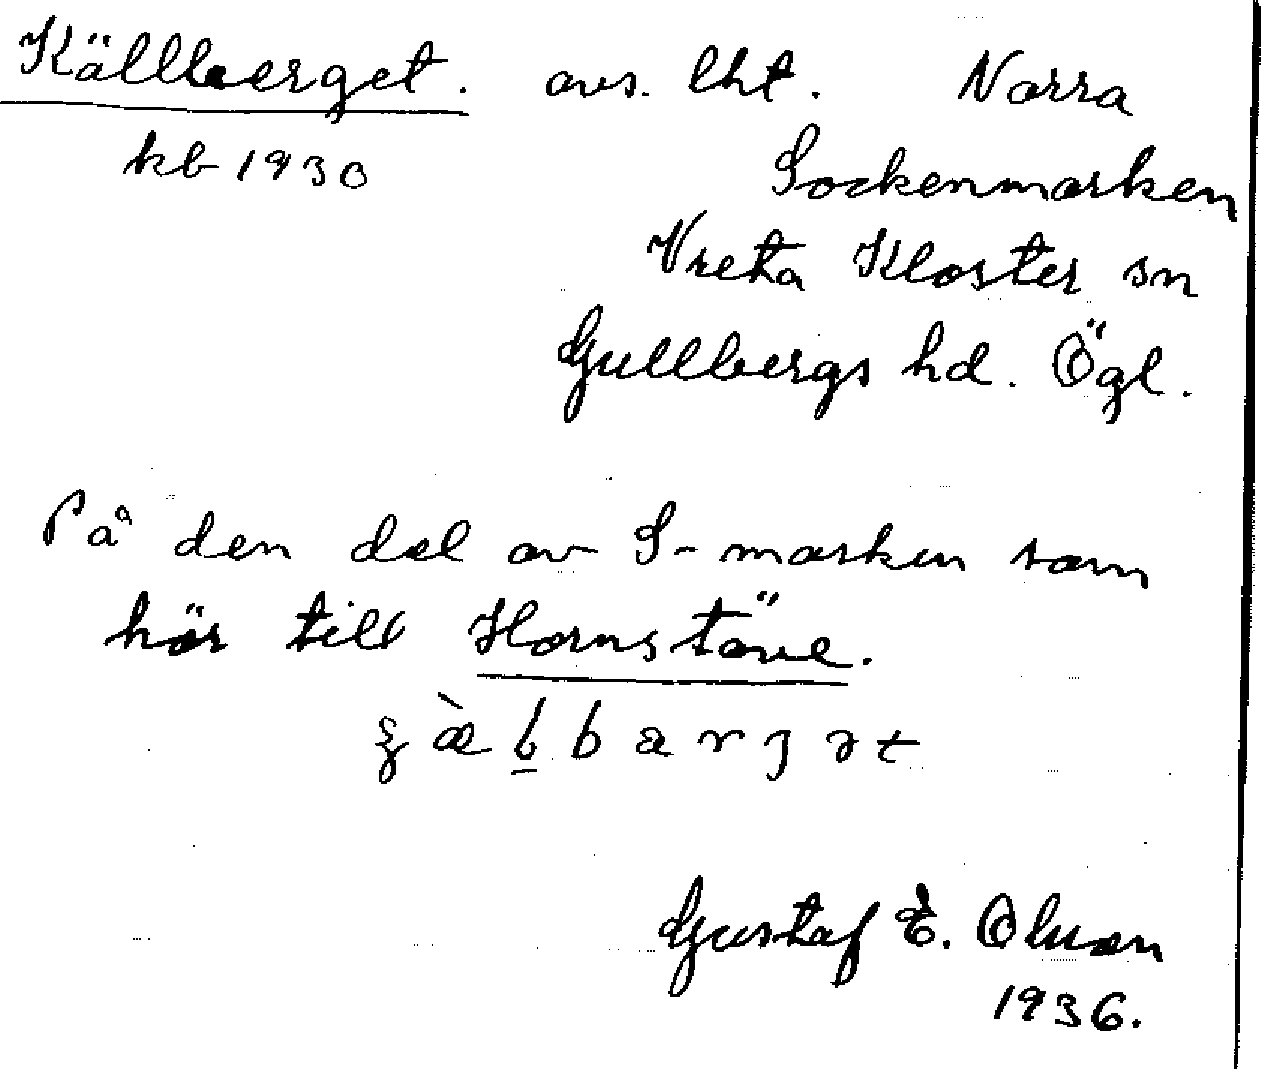 Källberget. avs. lht. Norra
kb 1930 Sockenmarken
Vreta Kloster sn
Gullbergs hd. Ögl.
På den del av S-marken som
hör till Hornstöve.
Gustaf E. Olson
1936.